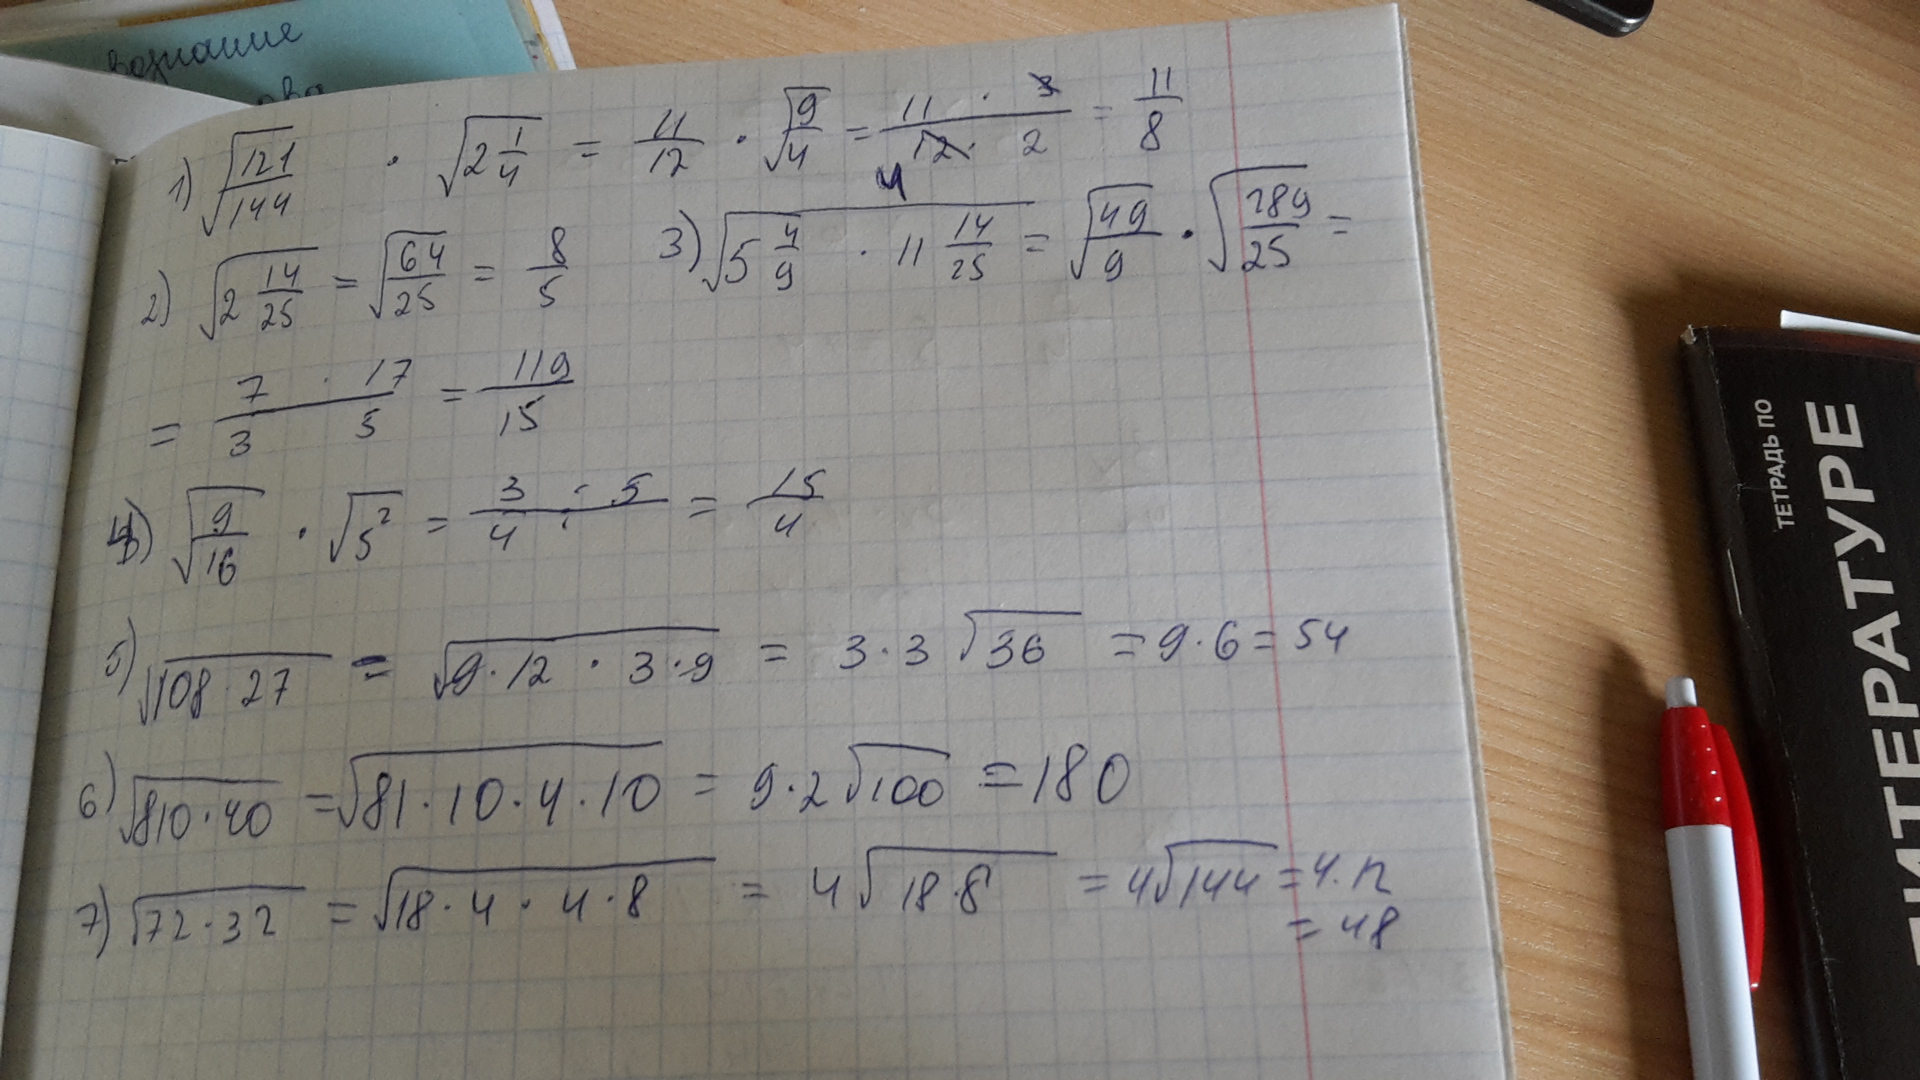 вознание
ова
1) √(121/144) · √(2 1/4) = 11/12 · √(9/4) = (11 · 3)/(12 · 2) = 11/8
4
2) √(2 14/25) = √(64/25) = 8/5
3) √(5 4/9 · 11 14/25) = √(49/9) · √(289/25) =
= (7 · 17)/(3 5) = 119/15
4) √(9/16) · √(5²) = 3/4 · 5 = 15/4
5) √(108 · 27) = √(9 · 12 · 3 · 9) = 3 · 3 √36 = 9 · 6 = 54
6) √(810 · 40) = √(81 · 10 · 4 · 10) = 9 · 2 √100 = 180
7) √(72 · 32) = √(18 · 4 · 4 · 8) = 4 √(18 · 8) = 4 √144 = 4 · 12
= 48
ТЕТРАДЬ ПО
ЛИТЕРАТУРЕ